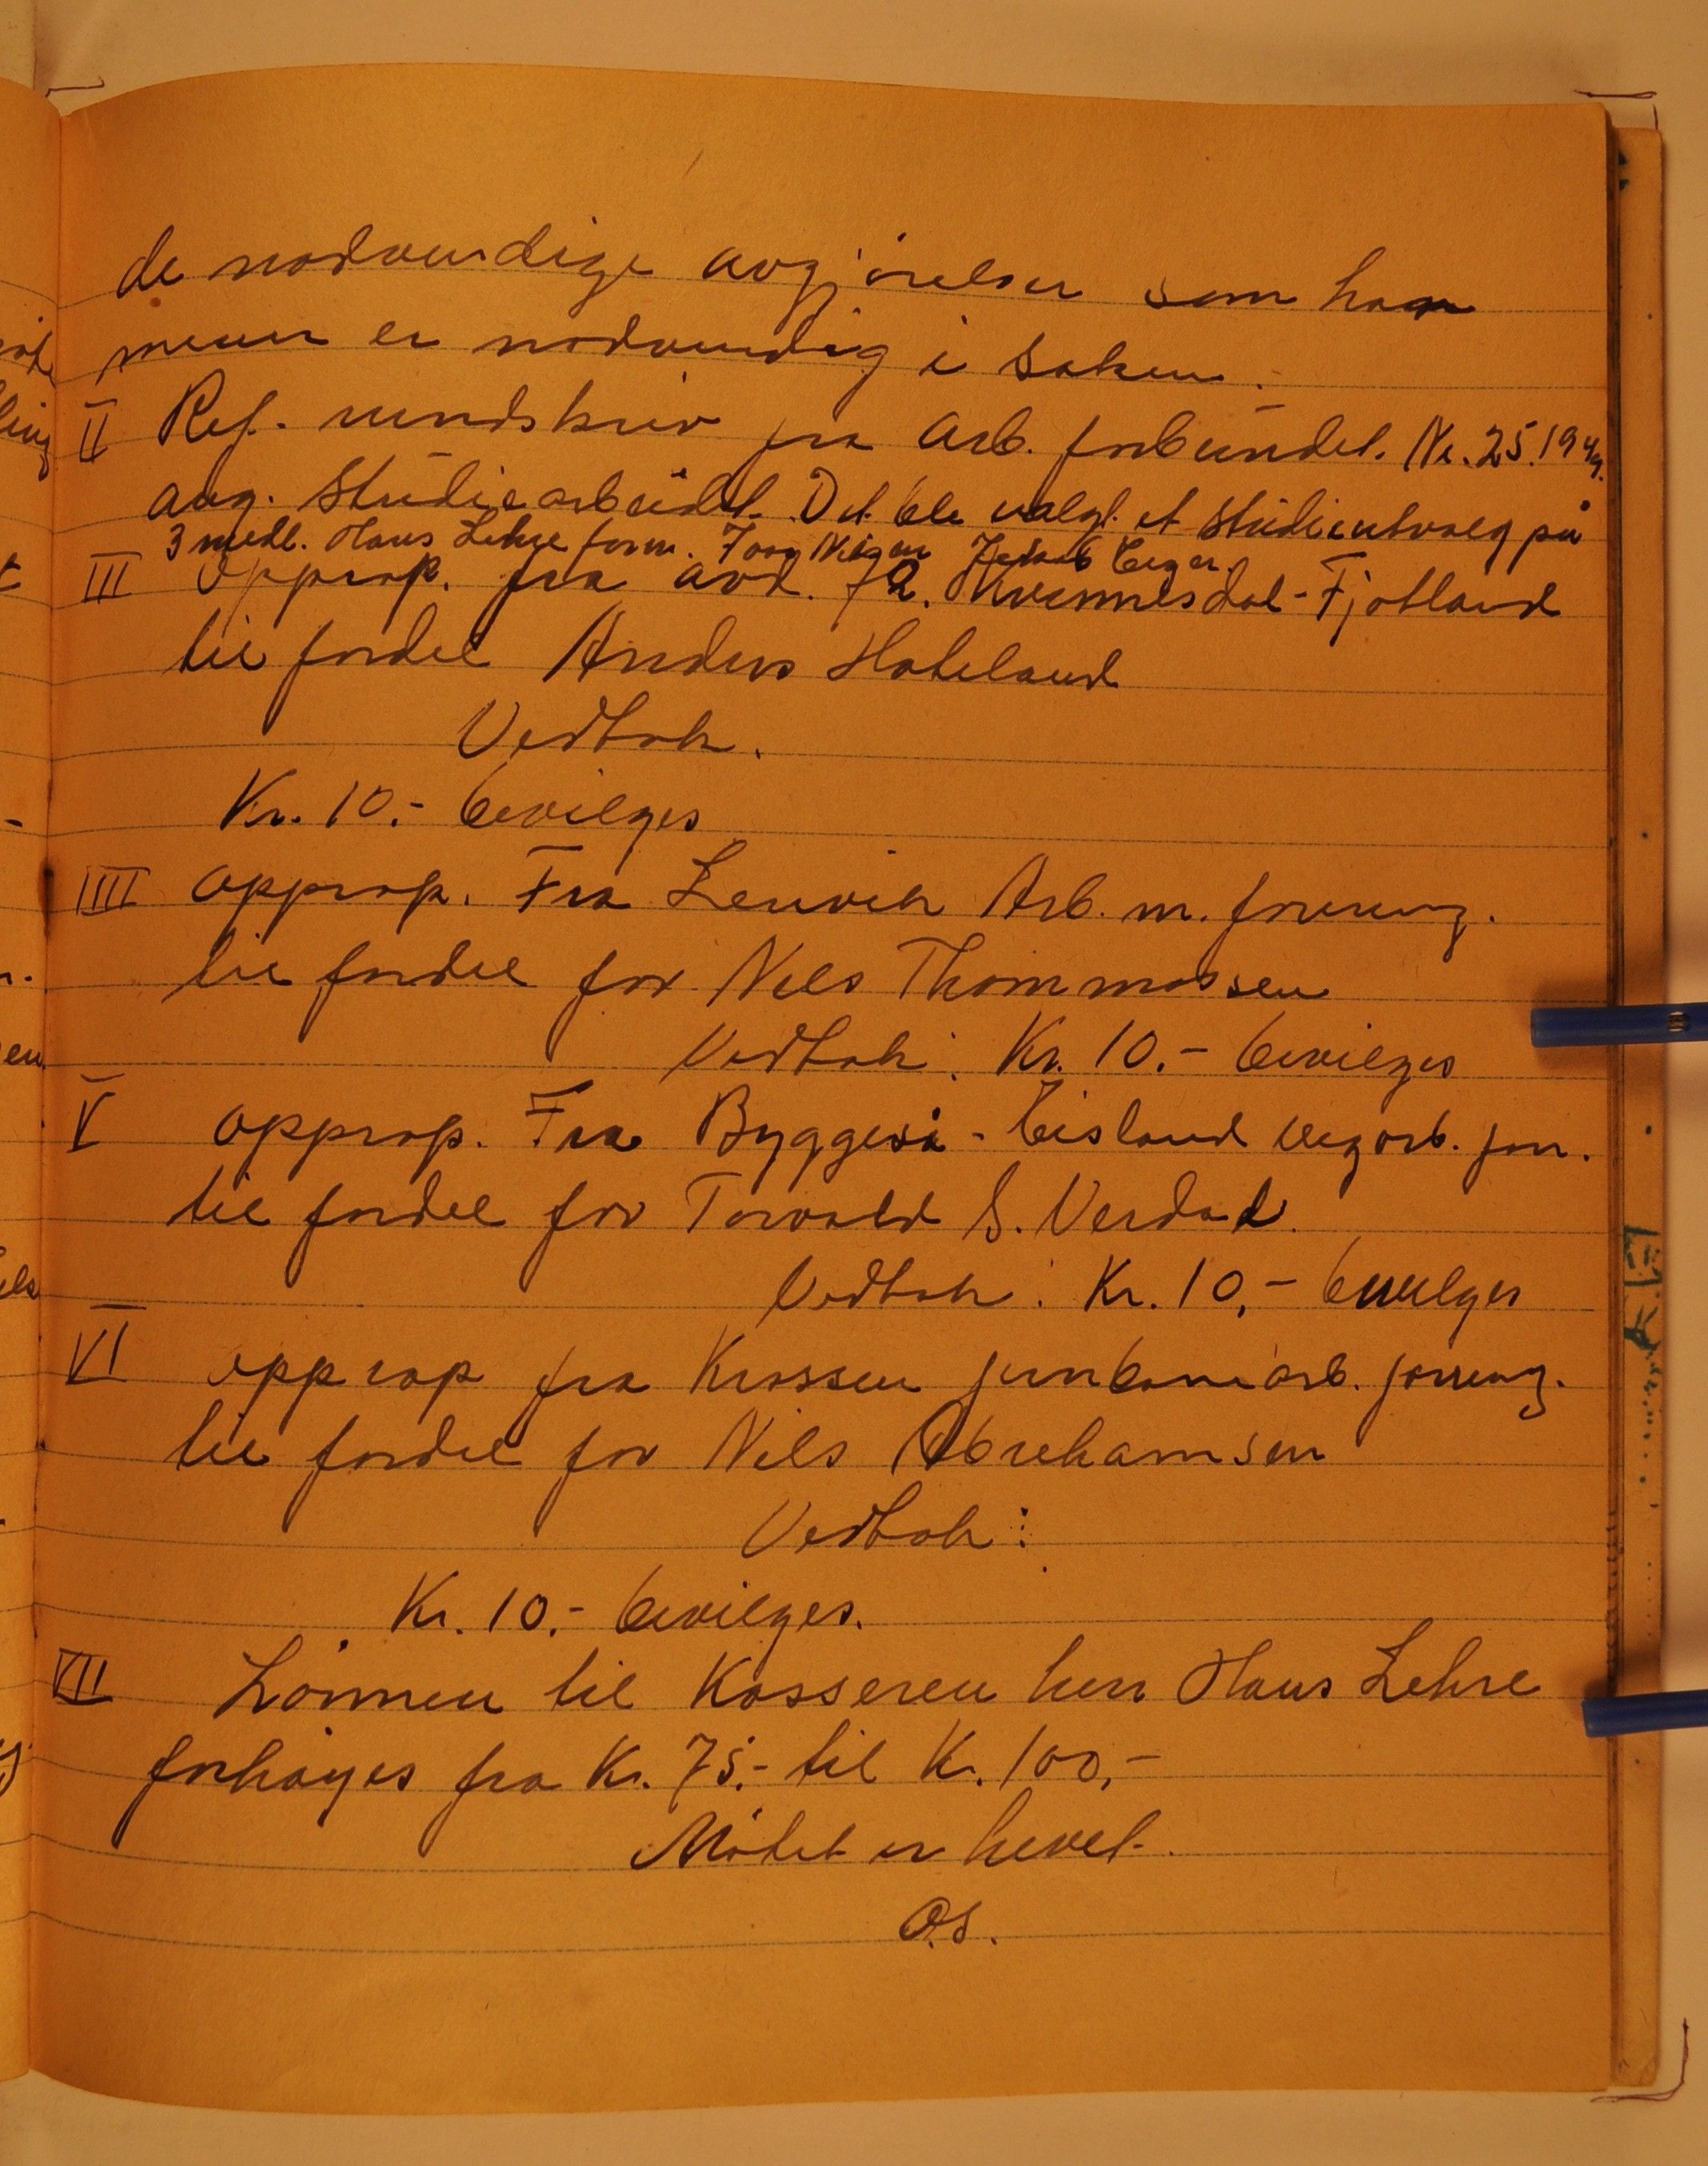 de nødvendige avgjørelser som han
mener er nødvendig i saken.
II Ref. rundskriv fra Arb. forbundet. Nr. 25. 1949.
ang. Studiearbeidet. Det ble valgt et studieutvalg på
3 medl. Hans Lehre form. Jakob
III Opprop. fra avd. 72. Kvinnesdal - Fjotland
til fordel Anders Hateland
Vedtak.
Kr. 10.- bevilges
IIII Opprop. Fra Lenvik Arb. m. forening.
til fordel for Nils Thommassen
Vedtak: Kr. 10.- bevilges
V Opprop. Fra Byggeså - Eisland veg arb. for.
til fordel for Torvald S. Verdal.
Vedtak: Kr. 10,- bevilges
VI Opprop fra Krossen jernbanearb. forening.
til fordel for Nils Abrehamsen
Vedtak:
Kr. 10.- bevilges.
VII Lønnen til Kasseren herr Hans Lehre
forhøyes fra Kr. 75.- til Kr. 100,-
Møtet er hevet.
O.S.